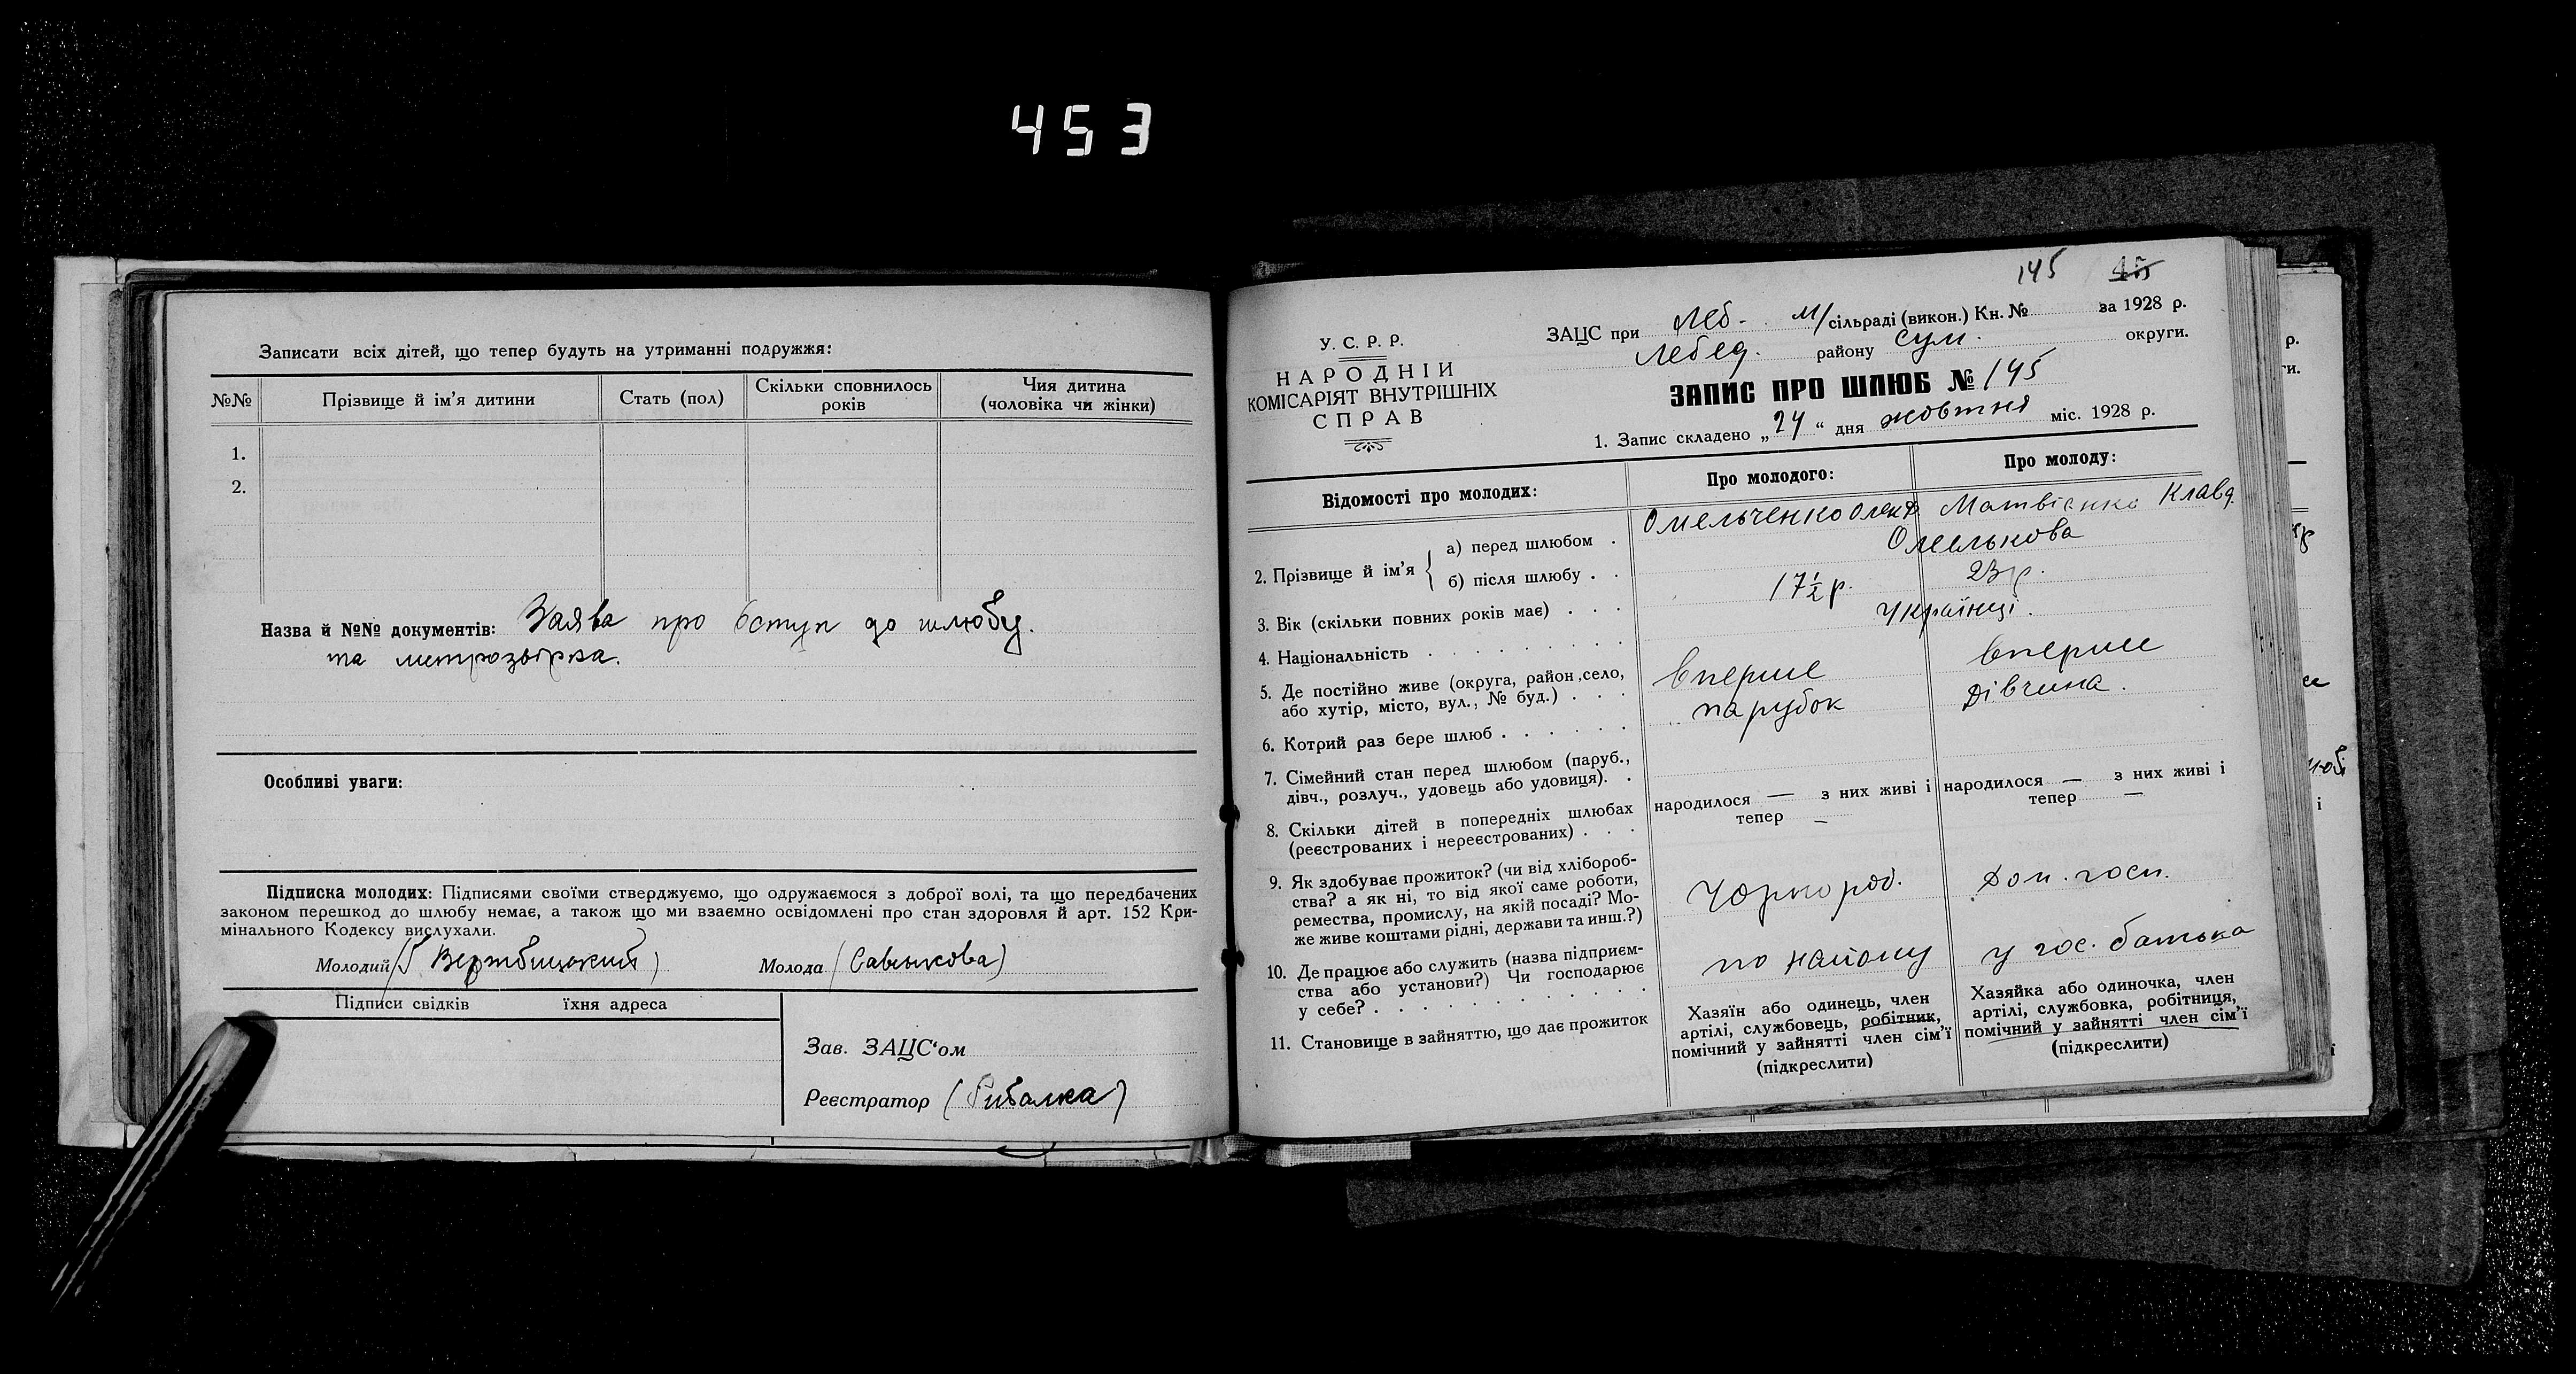 453
Записати всіх дітей, що тепер будуть на утриманні подружжя:
№№ Прізвище й ім'я дитини Стать (пол) Скільки сповнилось років Чия дитина (чоловіка чи жінки)
1.
2.
Назва й №№ документів: Заява про вступ до шлюбу.
та
Особливі уваги:
Підписка молодих: Підписями своїми стверджуємо, що одружаємося з доброї волі, та що передбачених
законом перешкод до шлюбу немає, а також що ми взаємно освідомлені про стан здоровля й арт. 152 Кри-
мінального Кодексу вислухали.
Молодий (Вержбицький) Молода (Савенкова)
Підписи свідків їхня адреса
Зав. ЗАЦС'ом
Реєстратор (Рибалка)
145 45
У. С. Р. Р.
НАРОДНІЙ
КОМІСАРІЯТ ВНУТРІШНІХ
СПРАВ
ЗАЦС при Леб. м/сільраді (викон.) Кн. № за 1928 р.
Лебед. району Сум. округи.
ЗАПИС ПРО ШЛЮБ № 145
1. Запис складено „24“ дня жовтня міс. 1928 р.
Відомості про молодих: Про молодого: Про молоду:
2. Прізвище й ім'я { а) перед шлюбом . Омельченко Олекс. Матвієнко Клавд.
б) після шлюбу . . Омелькова
3. Вік (скільки повних років має) . . . 17½ р. 23 р.
4. Національність . . . . . . . Українці.
5. Де постійно живе (округа, район, село,
або хутір, місто, вул., № буд.) . . .
6. Котрий раз бере шлюб . . . . . . вперше вперше
7. Сімейний стан перед шлюбом (паруб.,
дівч., розлуч., удовець або удовиця). . парубок дівчина.
8. Скільки дітей в попередніх шлюбах
(реєстрованих і нереєстрованих) . . .
народилося — з них живі і
тепер —
народилося — з них живі і
тепер —
9. Як здобуває прожиток? (чи від хлібороб-
ства? а як ні, то від якої саме роботи,
ремества, промислу, на якій посаді? Мо-
же живе коштами рідні, держави та инш.?)
Чорнороб. Дом. госп.
10. Де працює або служить (назва підприєм-
ства або установи?) Чи господарює
у себе? . . . . . . . . . .
по найому у гос. батька
11. Становище в зайняттю, що дає прожиток
Хазяїн або одинець, член
артілі, службовець, робітник,
помічний у зайнятті член сім'ї
(підкреслити)
Хазяйка або одиночка, член
артілі, службовка, робітниця,
помічний у зайнятті член сім'ї
(підкреслити)